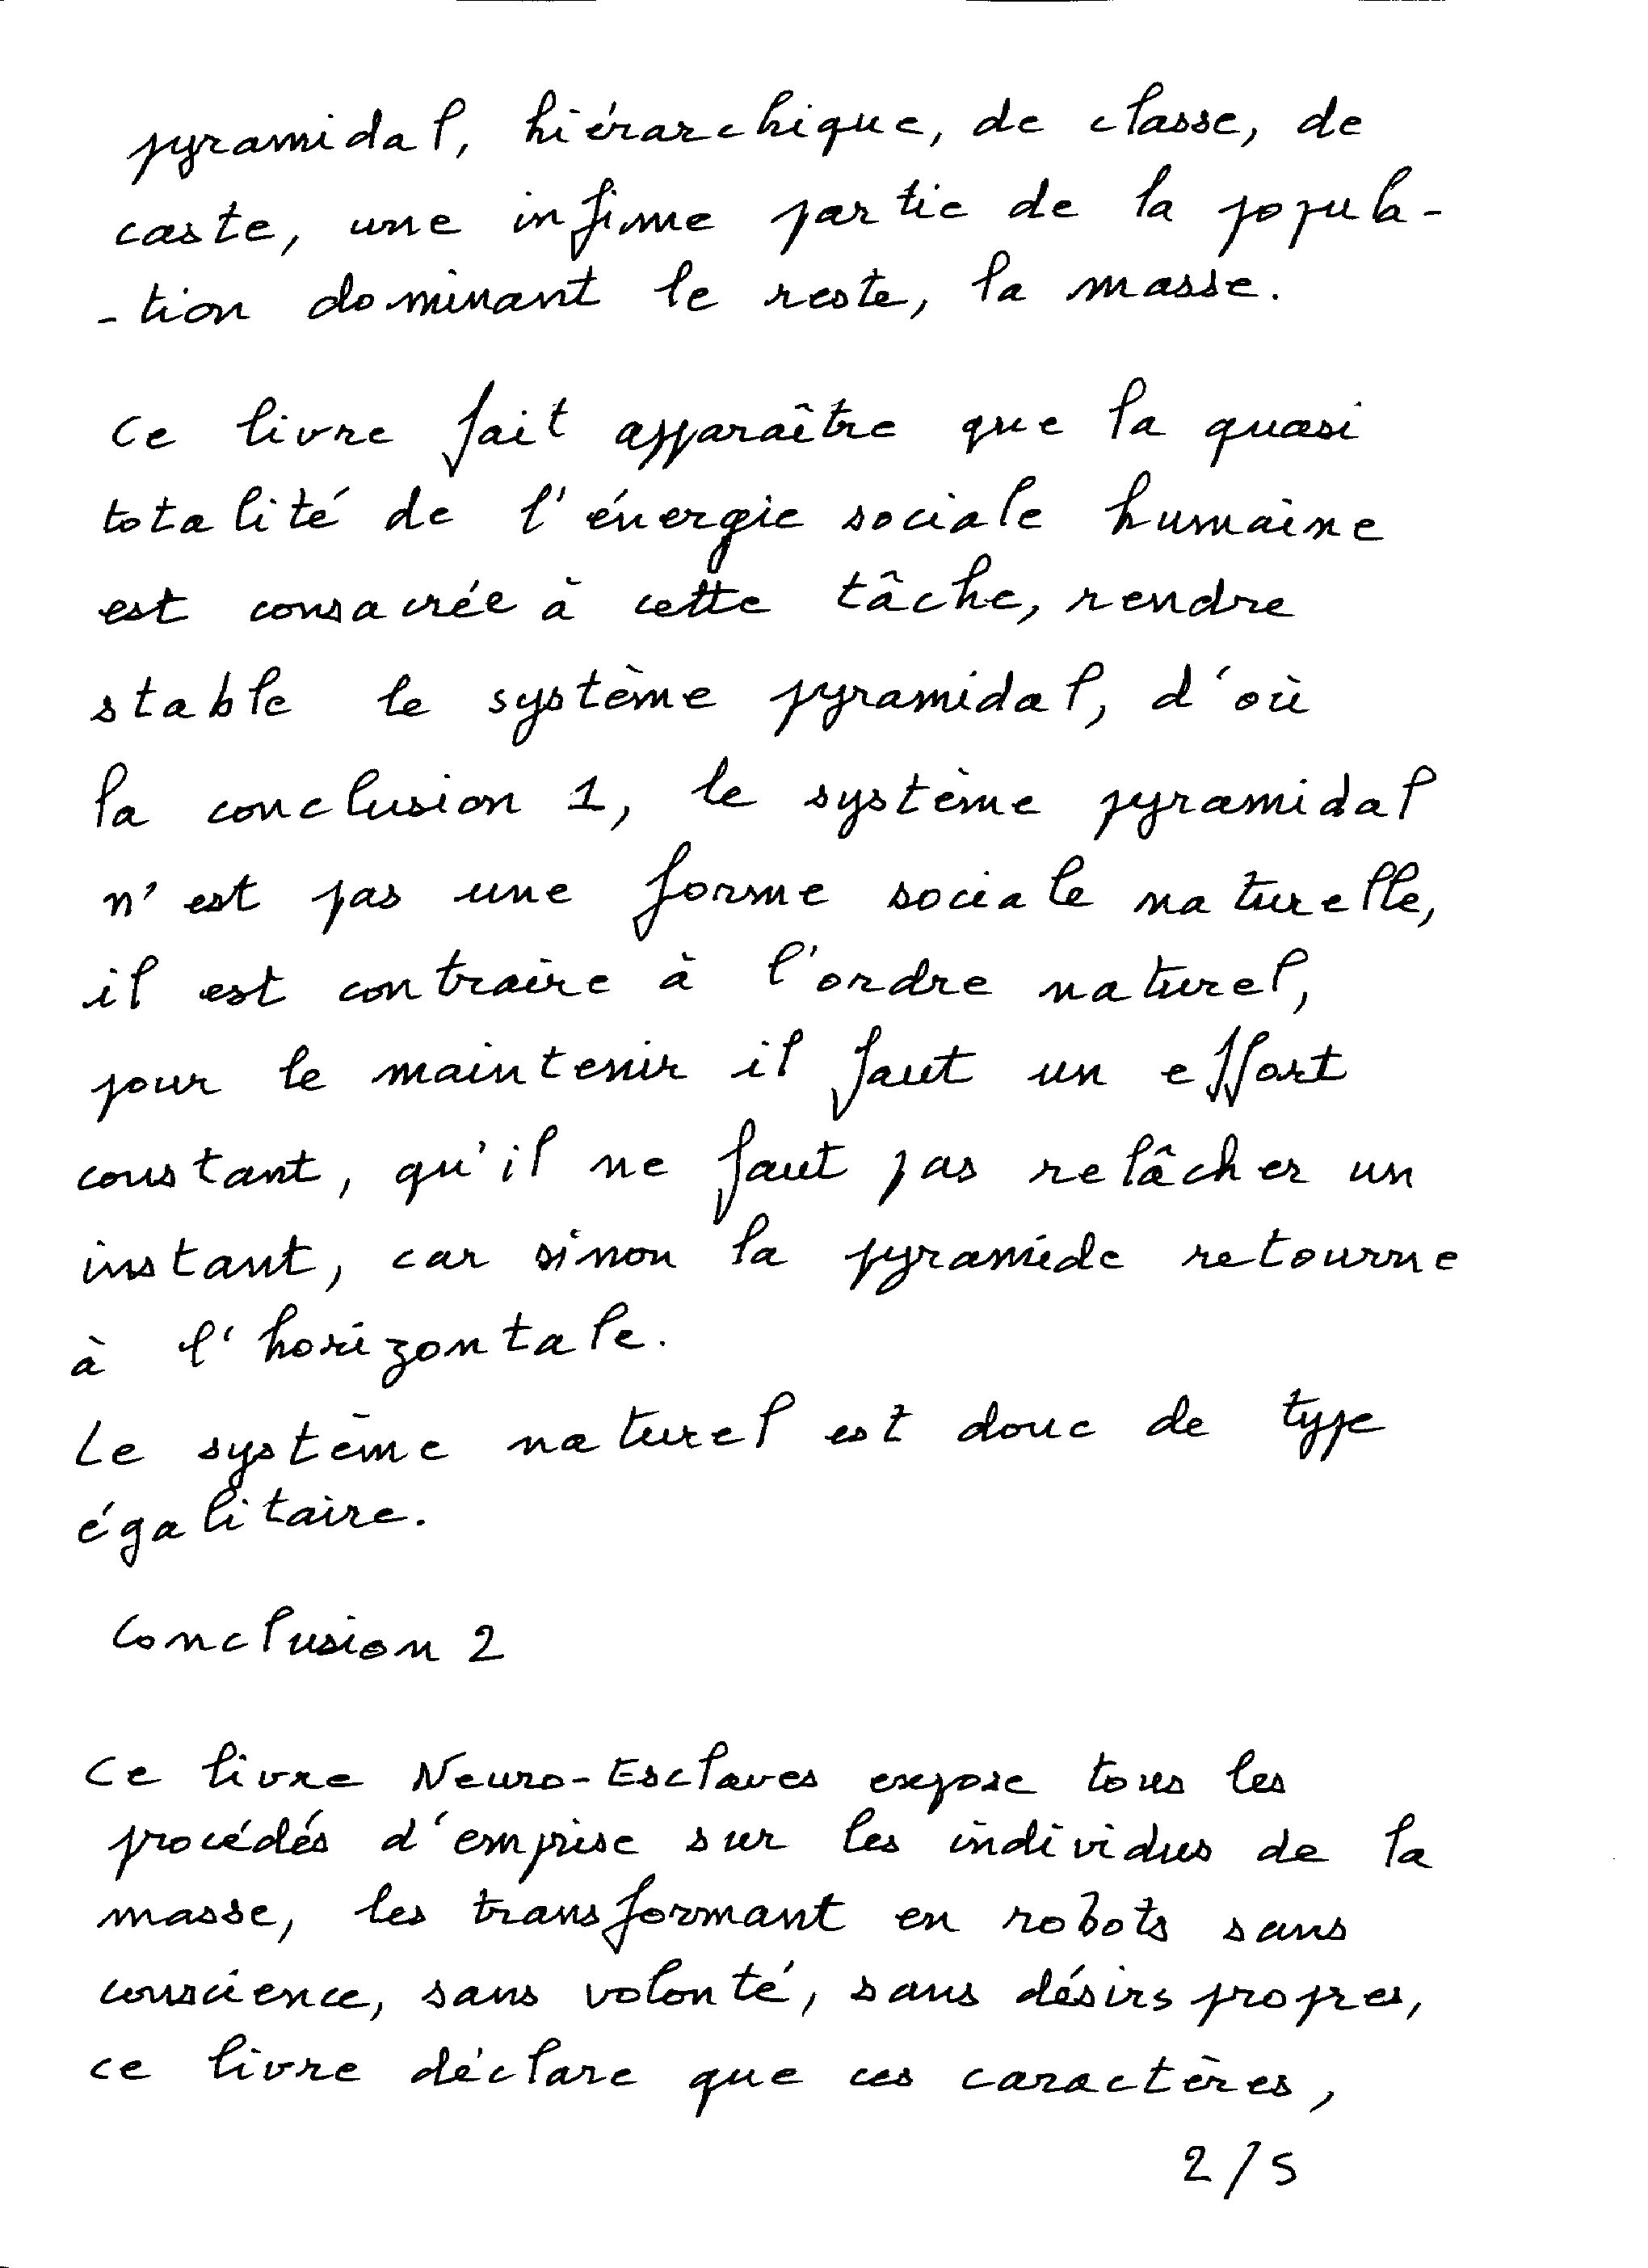 pyramidal, hiérarchique, de classe, de
caste, une infime partie de la popula-
-tion dominant le reste, la masse.
Ce livre fait apparaître que la quasi
totalité de l'énergie sociale humaine
est consacrée à cette tâche, rendre
stable le système pyramidal, d'où
la conclusion 1, le système pyramidal
n'est pas une forme sociale naturelle,
il est contraire à l'ordre naturel,
pour le maintenir il faut un effort
constant, qu'il ne faut pas relâcher un
instant, car sinon la pyramide retourne
à l'horizontale.
Le système naturel est donc de type
égalitaire.
Conclusion 2
Ce livre Neuro-Esclaves expose tous les
procédés d'emprise sur les individus de la
masse, les transformant en robots sans
conscience, sans volonté, sans désirs propres,
ce livre déclare que ces caractères,
2/5